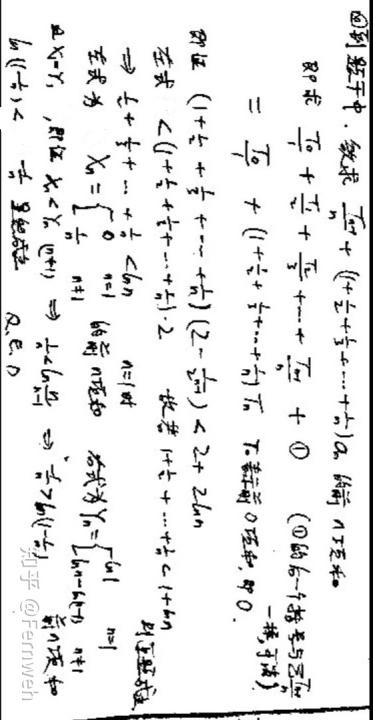 回到题干中. 欲求 \frac{T_{n-1}}{n} + (1+\frac{1}{2}+\frac{1}{3}+…+\frac{1}{n})a_n 的前n项和
即求 \frac{T_0}{1} + \frac{T_1}{2} + \frac{T_2}{3} + … + \frac{T_{n-1}}{n} + ①
= \frac{T_0}{1} + (1+\frac{1}{2}+\frac{1}{3}+…+\frac{1}{n})T_n T_0表示前0项和, 即0.
即证 (1+\frac{1}{2}+\frac{1}{3}+…+\frac{1}{n})(2-\frac{1}{2^{n-1}}) < 2+2lnn
左式 < (1+\frac{1}{2}+\frac{1}{3}+…+\frac{1}{n})·2 1+\frac{1}{2}+…+\frac{1}{n} < 1+lnn
⇒ \frac{1}{2}+\frac{1}{3}+…+\frac{1}{n} < lnn n=1时
左式为 X_n = { 0 n=1 \frac{1}{n} n≠1 的前n项和 右式为 Y_n = { ln1 n=1 lnn-ln(n-1) n≠1 前n项和
且X_1=Y_1, 即证 X_n<Y_n (n≠1) ⇒ \frac{1}{n}<ln\frac{n}{n-1} ⇒ -\frac{1}{n}>ln(1-\frac{1}{n})
ln(1-\frac{1}{n}) < -\frac{1}{n} 成立 Q.E.D
知乎 @Fernweh